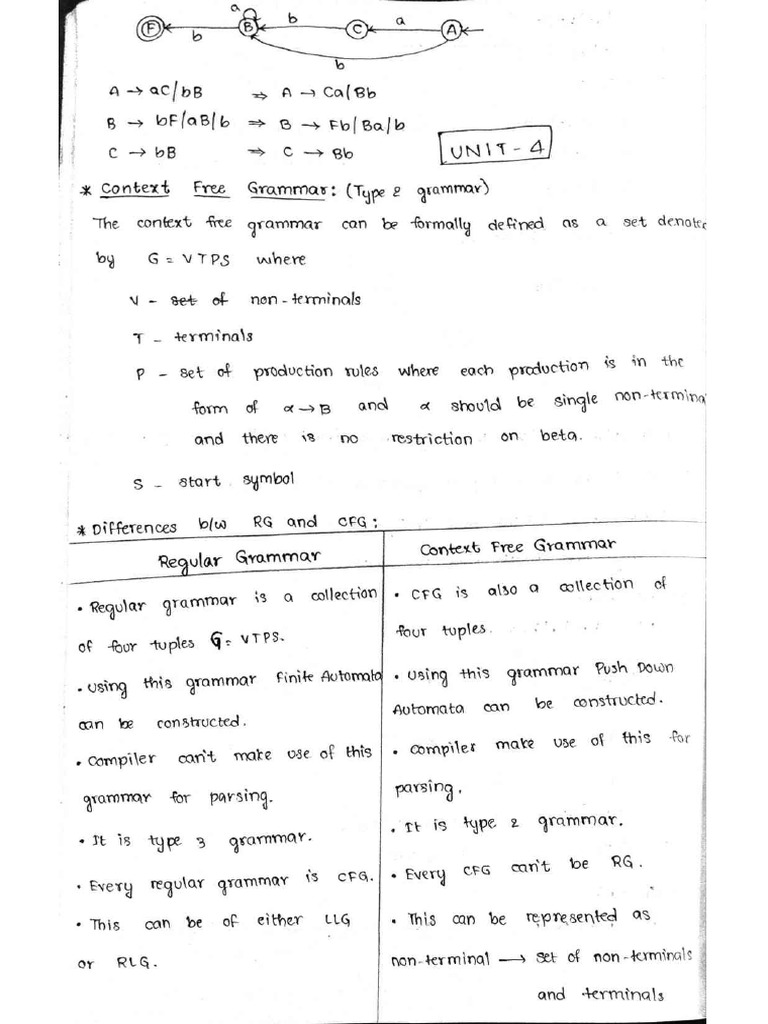 a
F b B b C a A
b
A → aC/bB ⇒ A → Ca/Bb
B → bF/aB/b ⇒ B → Fb/Ba/b
C → bB ⇒ C → Bb
UNIT - 4
* Context Free Grammar: (Type 2 grammar)
The context free grammar can be formally defined as a set denote
by G = VTPS where
V - set of non-terminals
T - terminals
P - set of production rules where each production is in the
form of α → B and α should be single non-termina
and there is no restriction on beta.
S - start symbol
* Differences b/w RG and CFG:
Regular Grammar
• Regular grammar is a collection
of four tuples G = VTPS.
• using this grammar Finite Automata
can be constructed.
• compiler can't make use of this
grammar for parsing.
• It is type 3 grammar.
• Every regular grammar is CFG.
• This can be of either LLG
or RLG.
Context Free Grammar
• CFG is also a collection of
four tuples.
• Using this grammar Push Down
Automata can be constructed.
• compiler make use of this for
parsing.
• It is type 2 grammar.
• Every CFG can't be RG.
• This can be represented as
non-terminal → set of non-terminals
and terminals